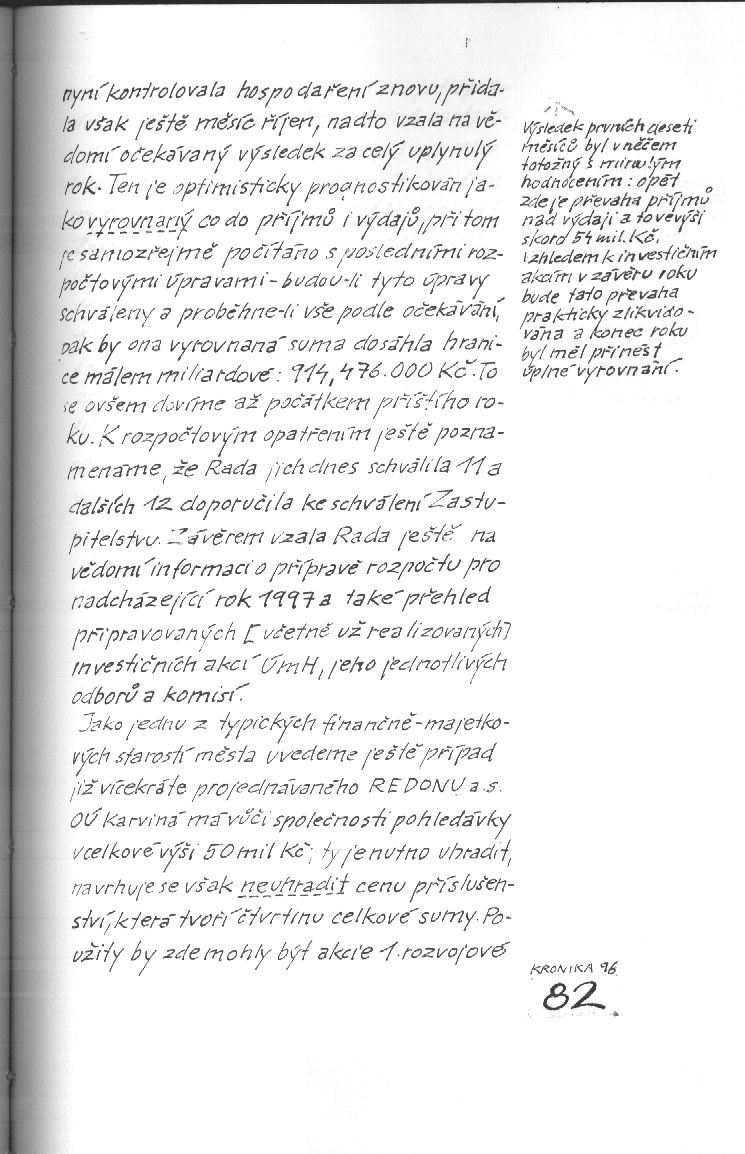 nyní kontrolovala hospodaření znovu, přida-
la však ještě měsíc říjen, nadto vzala na vě-
domí očekávaný výsledek za celý uplynulý
rok. Ten je optimisticky prognostikován ja-
ko vyrovnaný co do příjmů i výdajů, při tom
je samozřejmě počítáno s posledními roz-
počtovými úpravami - budou-li tyto úpravy
schváleny a proběhne-li vše podle očekávání,
pak by ona vyrovnaná suma dosáhla hrani-
ce málem miliardové: 914,476.000 Kč. To
se ovšem dovíme až počátkem příštího ro-
ku. K rozpočtovým opatřením ještě pozna-
menáme, že Rada jich dnes schválila 11 a
dalších 12 doporučila ke schválení Zastu-
pitelstvu. Závěrem vzala Rada ještě na
vědomí informaci o přípravě rozpočtu pro
nadcházející rok 1997 a také přehled
připravovaných [včetně už realizovaných]
investičních akcí ÚmH, jeho jednotlivých
odborů a komisí.
Jako jednu z typických finančně-majetko-
vých starostí města uvedeme ještě případ
již vícekráte projednávaného REDONU a.s.
OÚ Karviná má vůči společnosti pohledávky
v celkové výši 50 mil Kč; ty je nutno uhradit,
navrhuje se však neuhradit cenu příslušen-
ství, která tvoří čtvrtinu celkové sumy. Po-
užity by zde mohly být akcie 1. rozvojové
Výsledek prvních deseti
měsíců byl v něčem
totožný s minulým
hodnocením: opět
zde je převaha příjmů
nad výdaji a to ve výši
skoro 54 mil. Kč.
Vzhledem k investičním
akcím v závěru roku
bude tato převaha
prakticky zlikvido-
vána a konec roku
by měl přinést
úplné vyrovnání.
KRONIKA 96
82